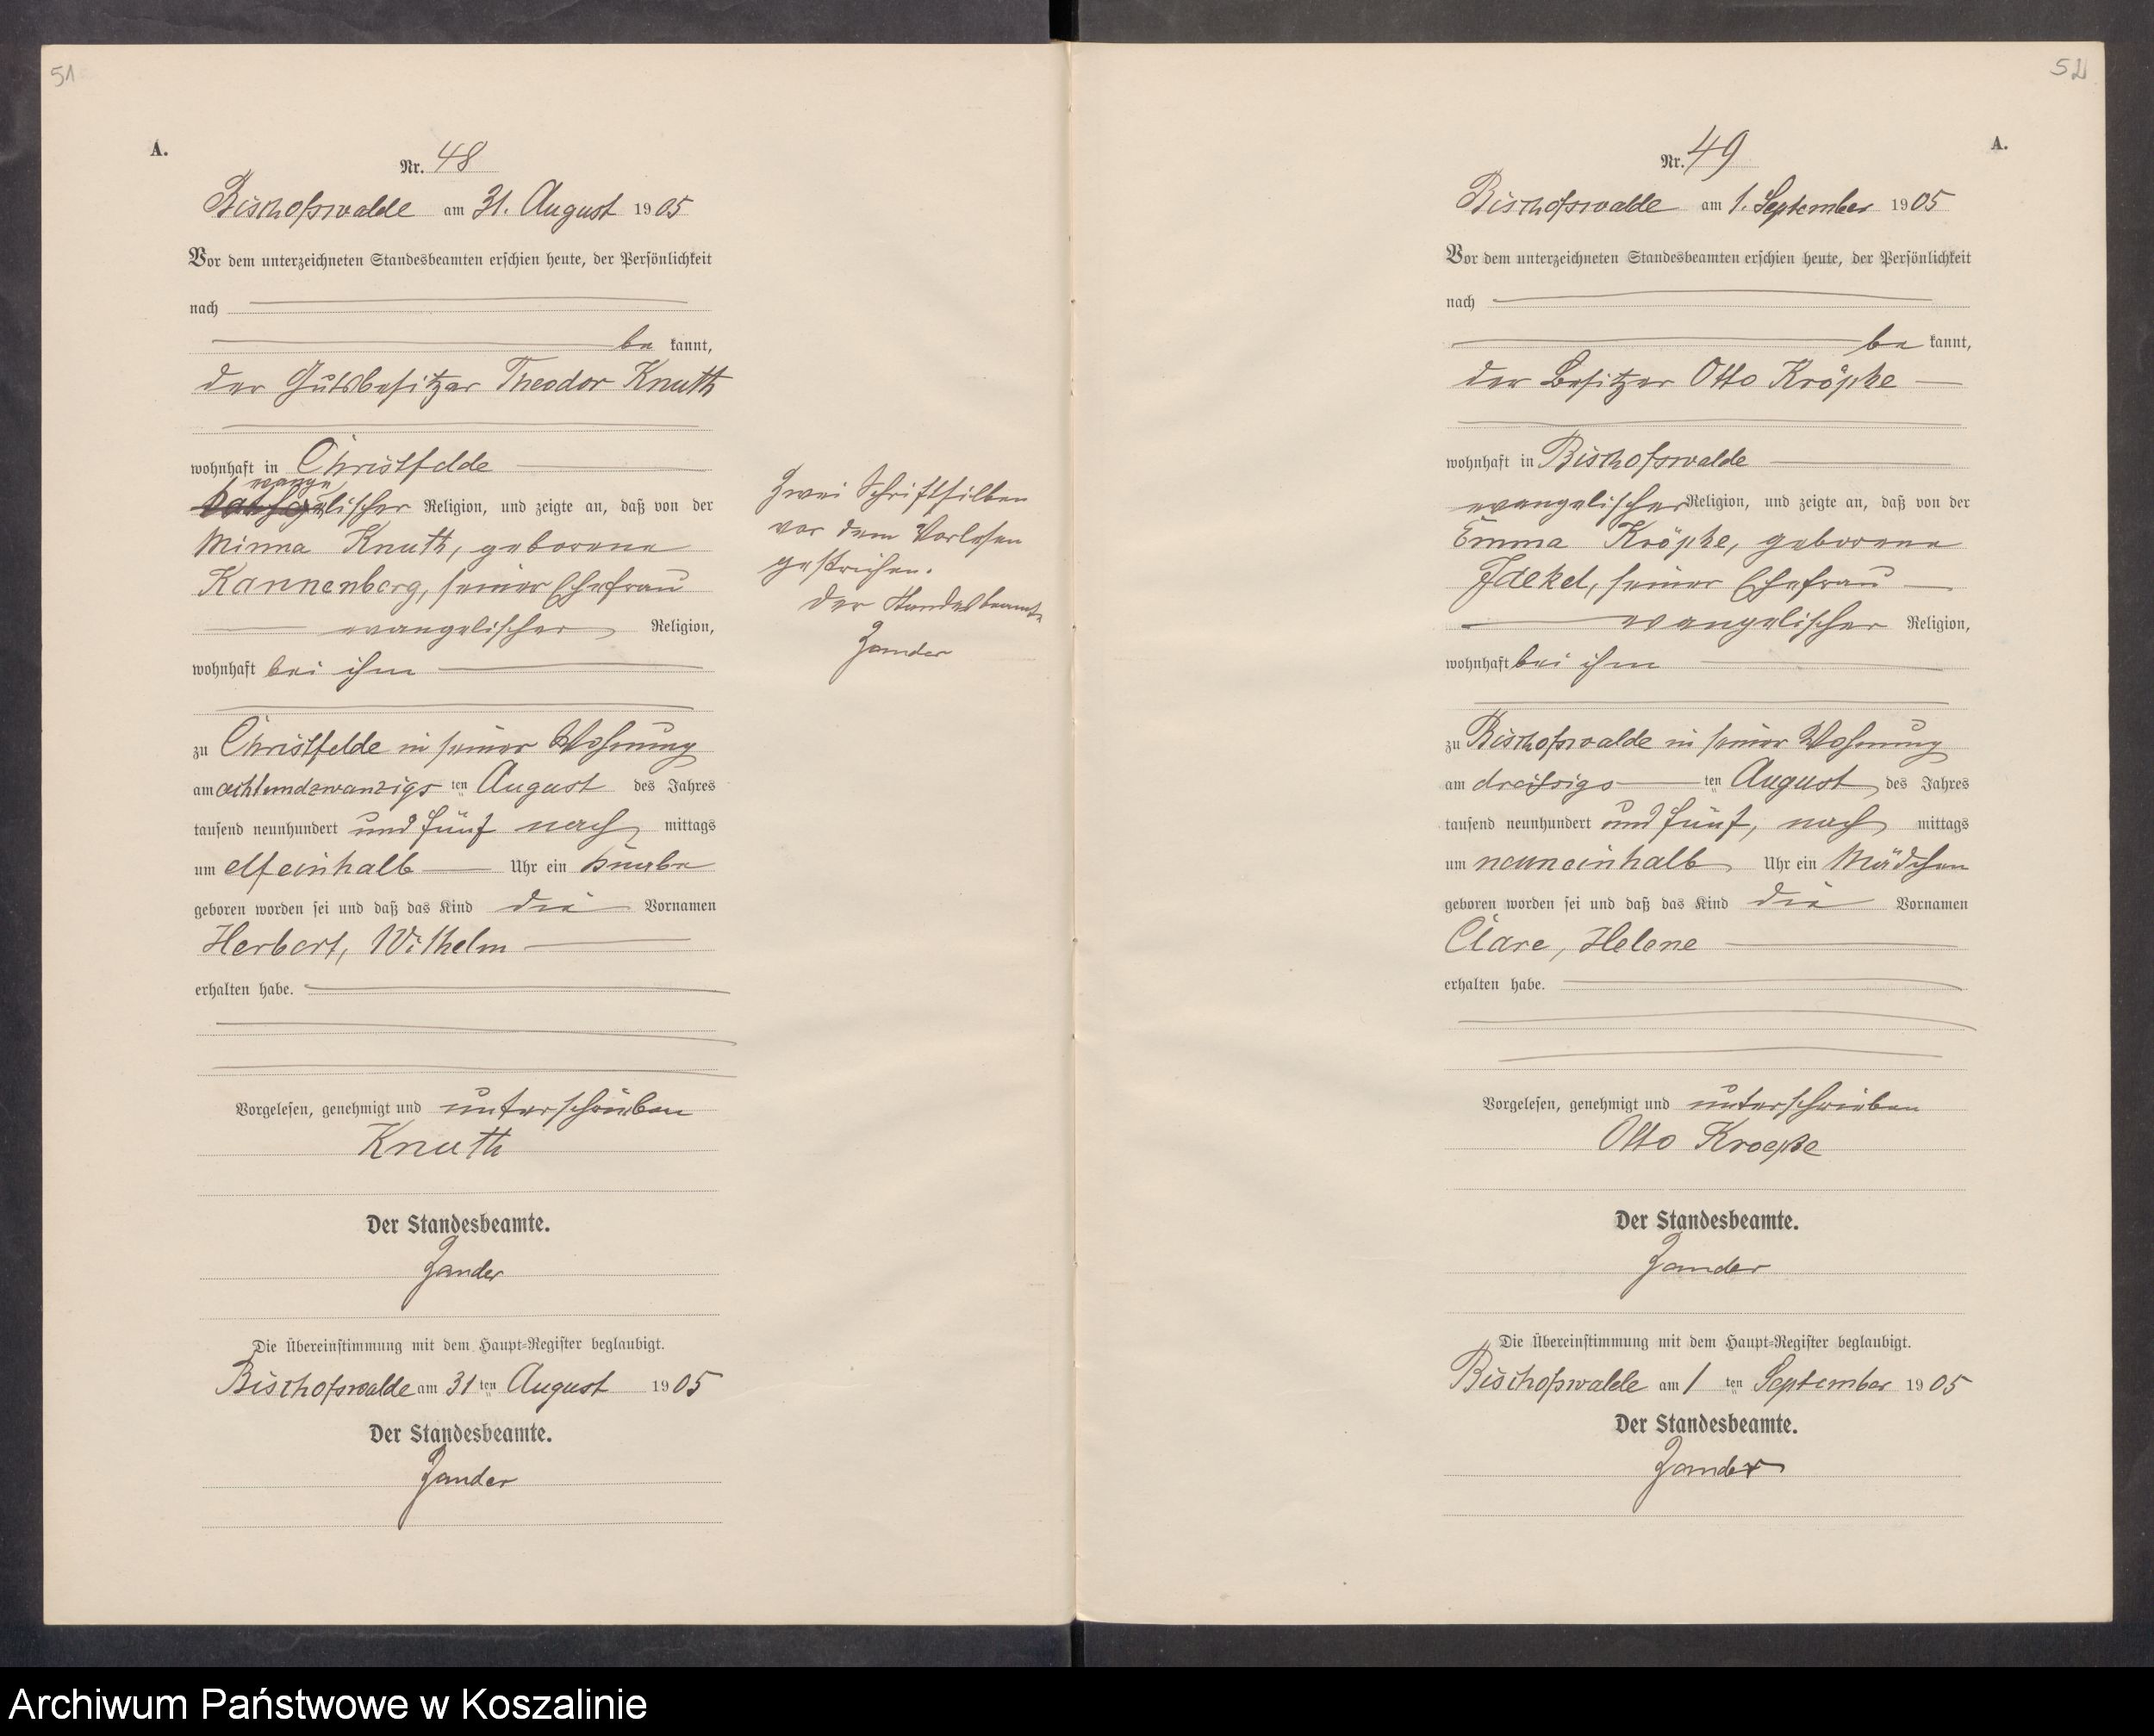 51
A.
Nr. 48
Bischofswalde am 31. August 1905
Vor dem unterzeichneten Standesbeamten erschien heute, der Persönlichkeit
nach
be kannt,
der Gutsbesitzer Theodor Knuth
wohnhaft in Christfelde
evangelischer Religion, und zeigte an, daß von der
Minna Knuth, geborene
Kannenberg, seiner Ehefrau
evangelischer Religion,
wohnhaft bei ihm
zu Christfelde in seiner Wohnung
am achtundzwanzigs ten August des Jahres
tausend neunhundert und fünf nach mittags
um elfeinhalb Uhr ein Knabe
geboren worden sei und daß das Kind die Vornamen
Herbert, Wilhelm
erhalten habe.
Vorgelesen, genehmigt und unterschrieben
Knuth
Der Standesbeamte.
Zander
Die Übereinstimmung mit dem Haupt-Register beglaubigt.
Bischofswalde am 31 ten August 1905
Der Standesbeamte.
Zander
Zwei Schriftsilben
vor dem Vorlesen
gestrichen.
Der Standesbeamte
Zander
52
A.
Nr. 49
Bischofswalde am 1. September 1905
Vor dem unterzeichneten Standesbeamten erschien heute, der Persönlichkeit
nach
be kannt,
der Besitzer Otto Kröpke
wohnhaft in Bischofswalde
evangelischer Religion, und zeigte an, daß von der
Emma Kröpke, geborene
Jaekel, seiner Ehefrau
evangelischer Religion,
wohnhaft bei ihm
zu Bischofswalde in seiner Wohnung
am dreißigs ten August des Jahres
tausend neunhundert und fünf, nach mittags
um neuneinhalb Uhr ein Mädchen
geboren worden sei und daß das Kind die Vornamen
Clare, Helene
erhalten habe.
Vorgelesen, genehmigt und unterschrieben
Otto Kroepke
Der Standesbeamte.
Zander
Die Übereinstimmung mit dem Haupt-Register beglaubigt.
Bischofswalde am 1 ten September 1905
Der Standesbeamte.
Zander
Archiwum Państwowe w Koszalinie